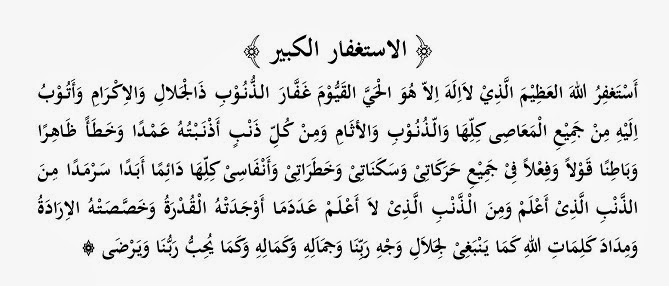 ﴿ الاستغفار الكبير ﴾
أَسْتَغفِرُ اللهَ العَظِيْمَ الَّذِيْ لاَاِلَهَ اِلاّ هُوَ الْحَيَّ القَيُّوْمَ غَفَّارَ الذُّنُوْبِ ذَالْجَلالِ وَالإكْرَامِ وَأَتُوْبُ
اِلَيْهِ مِنْ جَمِيْعِ الْمَعَاصِى كِلِّهَا وَالذُّنُوْبِ وَالأثَامِ وَمِنْ كُلِّ ذَنْبٍ أَذْنَبْتُهُ عَمْدًا وَخَطَأً ظَاهِرًا
وَبَاطِنًا قَوْلاً وَفِعْلاً فِيْ جَمِيْعِ حَرَكَاتِيْ وَسَكَنَاتِيْ وَخَطَرَاتِيْ وَأَنْفَاسِيْ كِلِّهَا دَائِمًا أَبَدًا سَرْمَدًا مِنَ
الذَّنْبِ الَّذِيْ أَعْلَمُ وَمِنَ الذَّنْبِ الَّذِيْ لاَ أَعْلَمُ عَدَدَمَا أَوْجَدَتْهُ الْقُدْرَةُ وَخَصَّصَتْهُ الإرَادَةُ
وَمِدَادَ كَلِمَاتِ اللهِ كَمَا يَنْبَغِيْ لِجَلاَلِ وَجْهِ رَبِّنَا وَجمَالِهِ وَكَمَالِهِ وَكَمَا يُحِبُّ رَبُّنَا وَيَرْضَى